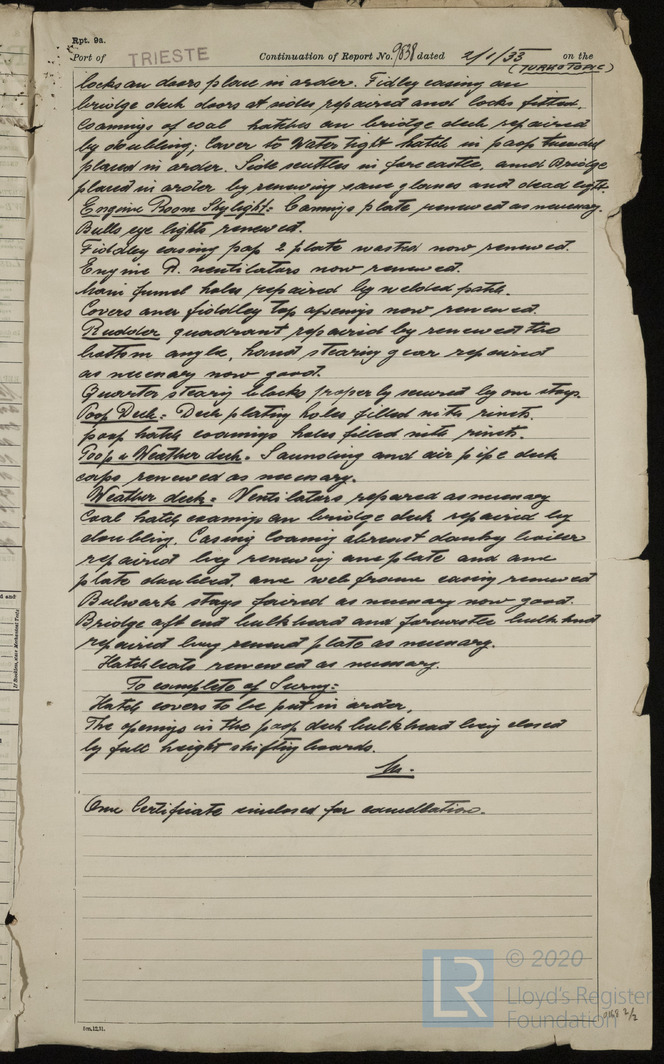 Rpt. 9a.
Port of TRIESTE Continuation of Report No. 9838 dated 2/1/33 on the
(TURKOTOPIC)
locks on doors place in order. Fidley casing on
bridge deck doors at sides repaired and locks fitted.
Coamings of coal hatches on bridge deck repaired
by doubling; Cover to Water tight hatch in poop
placed in order. Side scuttles in forecastle, and Bridge
placed in order by renewing some glasses and dead light.
Engine Room Skylight: Coamings plate renewed as necessary.
Bulls eye lights renewed.
Fiddley casing top 2 plate wasted now renewed.
Engine R. ventilators now renewed.
Main funnel holes repaired by welded patch.
Covers over fiddley top openings now renewed.
Rudder quadrant repaired by renewed the
bottom angle, hand stearing gear repaired
as necenary now good.
Quarter stearig blocks properly secured by one stays.
Poop Deck: Deck plating holes filled with rivets.
poop hatch coamings holes filled with rivets.
Poop & Weather deck. Saunding and air pipe deck
caps renewed as necenary.
Weather deck: Ventilators repared as necenary
Coal hatch coamings on bridge deck repaired by
doubling. Casing coamig abreast donkey boiler
repaired by renewing one plate and one
plate doubled, one web frame casing renewed
Bulwark stays faired as necenary now good.
Bridge aft end bulkhead and forecastle bulkhead
repaired by renewed plate as necenary.
Hatch cleats renewed as necenary.
To complete of Survey:
Hatch covers to be put in order.
The openings in the poop deck bulkhead being closed
by full height shifting boards.
One Certificate enclosed for cancellation.
1m.12.31.
d and
© 2020
LR
Lloyd's Register
Foundation
0168 2/2